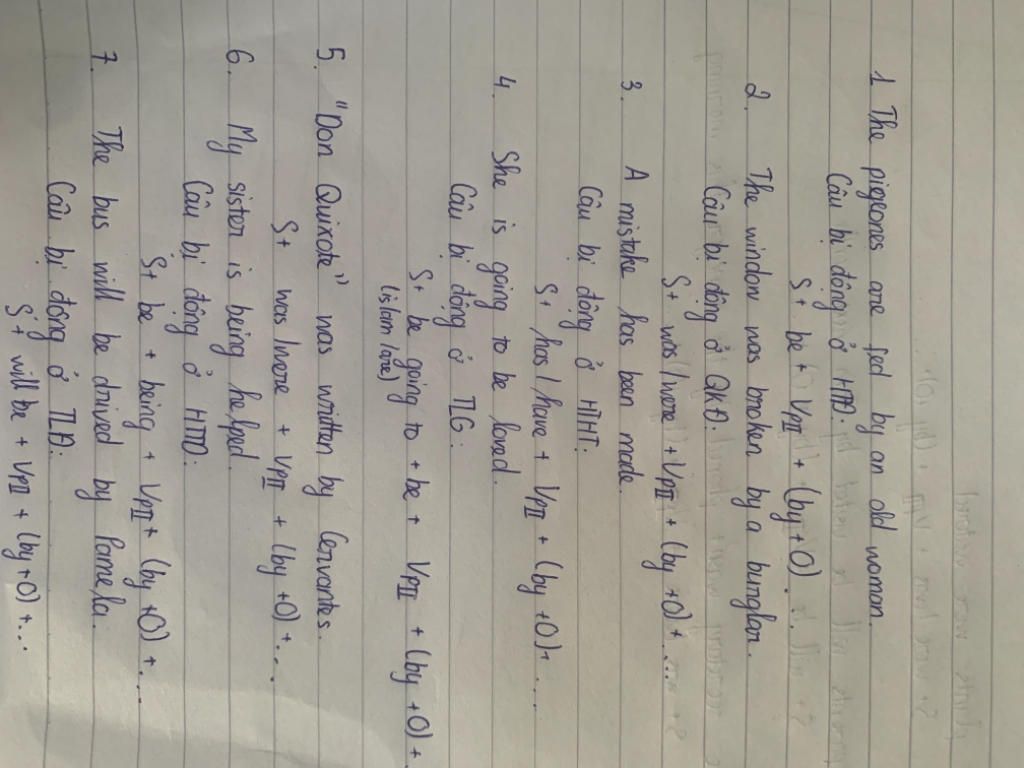 1. The pigeones are fed by an old woman.
Câu bị động ở HTĐ.
S + be + VpII + (by + O).
2. The window was broken by a bunglar.
Câu bị động ở QKĐ.
S + was / were + VpII + (by + O) + ...
3. A mistake has been made.
Câu bị động ở HTHT:
S + has / have + VpII + (by + O) + ...
4. She is going to be loved.
Câu bị động ở TLG:
S + be going to + be + VpII + (by + O) +
(is/am/are)
5. "Don Quixote" was written by Cervantes.
S + was / were + VpII + (by + O) + ...
6. My sistor is being helped.
Câu bị động ở HTTD:
S + be + being + VpII + (by + O) + ...
7. The bus will be drived by Pamela.
Câu bị động ở TLĐ:
S + will be + VpII + (by + O) + ...